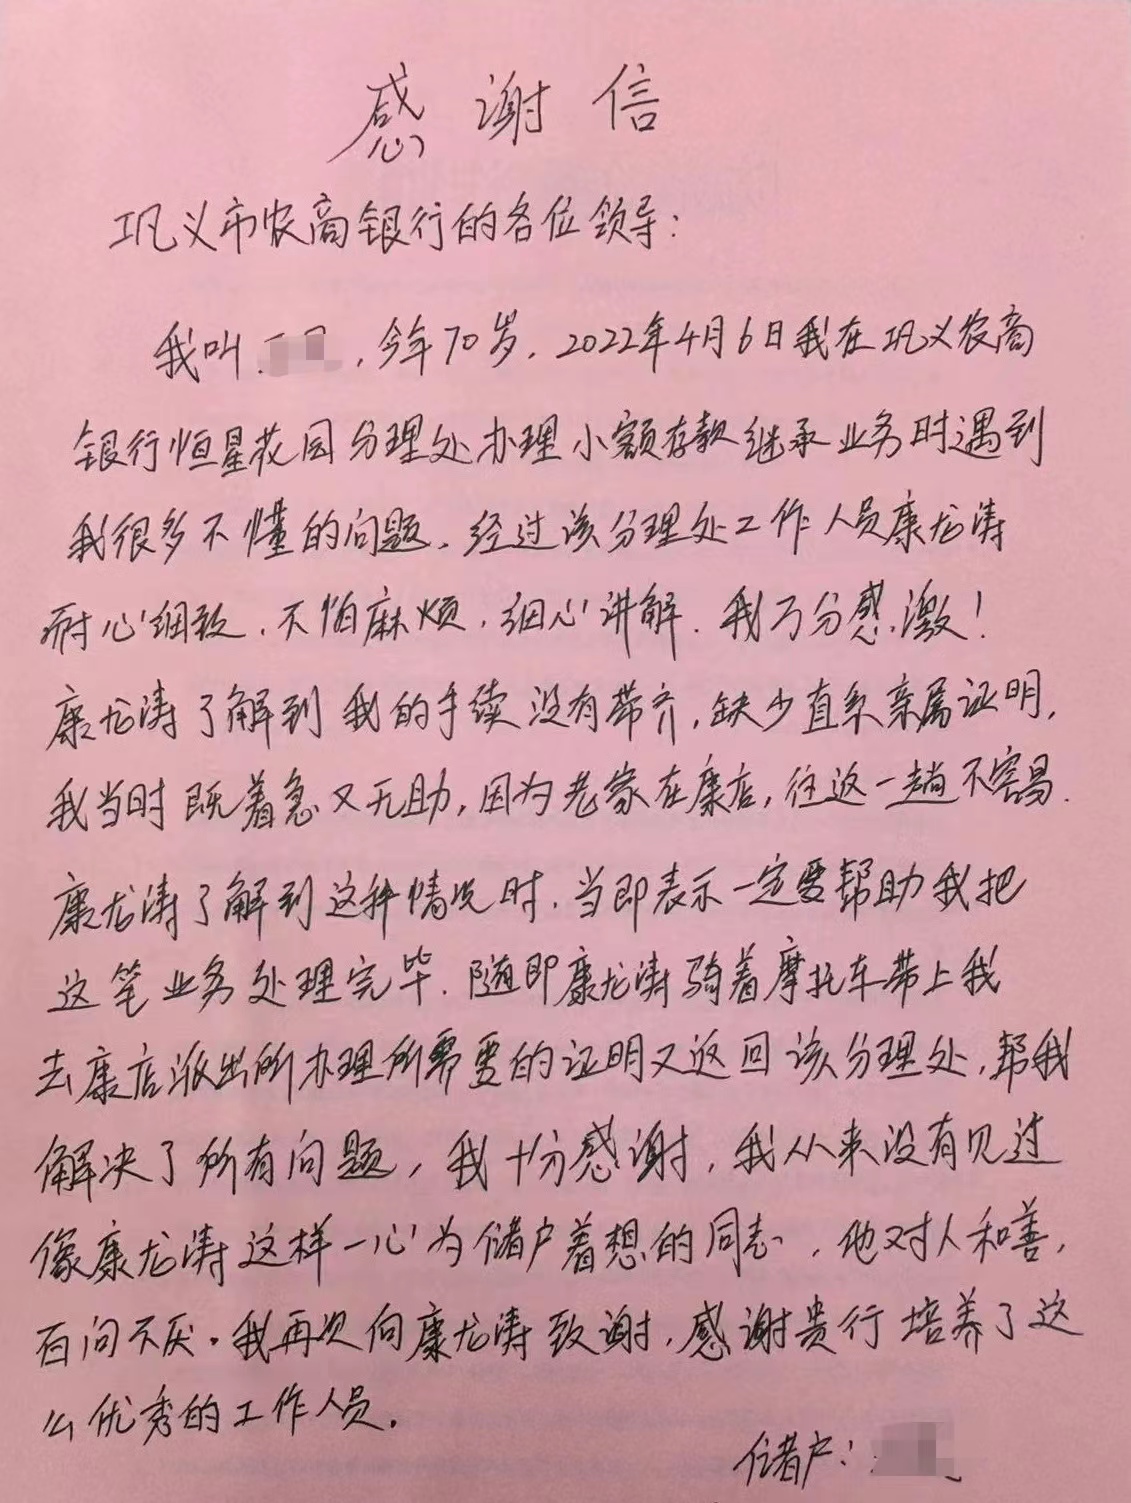 感谢信
巩义市农商银行的各位领导：
我叫，今年70岁，2022年4月6日我在巩义农商
银行恒星花园分理处办理小额存款继承业务时遇到
我很多不懂的问题、经过该分理处工作人员康龙涛
耐心细致、不怕麻烦，细心讲解．我万分感激！
康龙涛了解到我的手续没有带齐，缺少直系亲属证明，
我当时既着急又无助，因为老家在康店，往返一趟不容易．
康龙涛了解到这种情况时．当即表示一定要帮助我把
这笔业务处理完毕．随即康龙涛骑着摩托车带上我
去康店派出所办理所需要的证明又返回该分理处，帮我
解决了所有问题，我十分感谢，我从来没有见过
像康龙涛这样一心为储户着想的同志，他对人和善，
百问不厌．我再次向康龙涛致谢，感谢贵行培养了这
么优秀的工作人员．
储户：